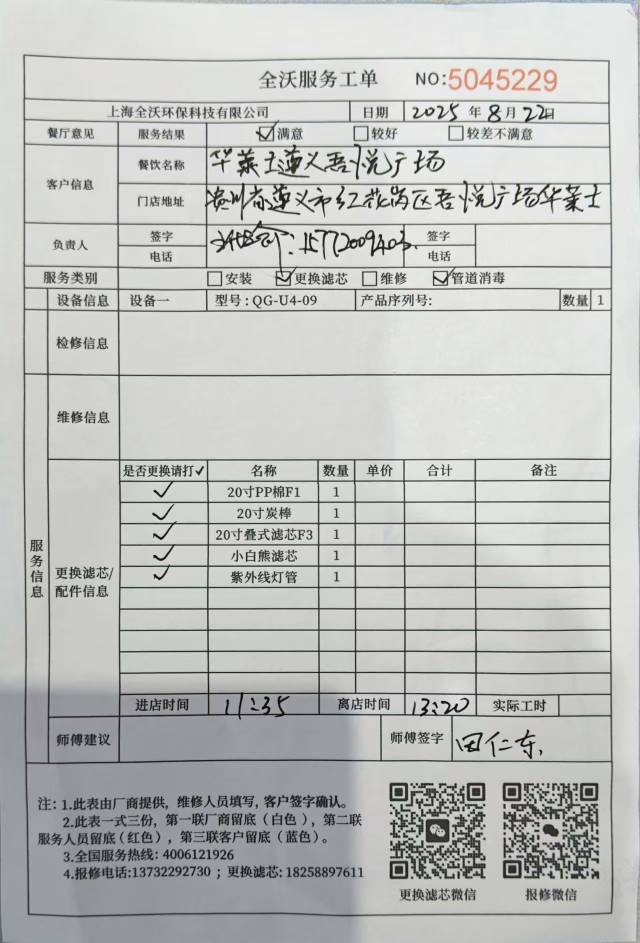 全沃服务工单 NO:5045229
上海全沃环保科技有限公司 日期 2025 年 8 月 22日
餐厅意见 服务结果 ☑满意 □较好 □较差不满意
客户信息 餐饮名称 华莱士遵义吾悦广场
门店地址 贵州省遵义市红花岗区吾悦广场华莱士
负责人 签字 电话 签字 电话
服务类别 □安装 ☑更换滤芯 □维修 ☑管道消毒
设备信息 设备一 型号:QG-U4-09 产品序列号: 数量 1
检修信息
维修信息
服务信息
更换滤芯/配件信息
是否更换请打✓ 名称 数量 单价 合计 备注
✓ 20寸PP棉F1 1
✓ 20寸炭棒 1
✓ 20寸叠式滤芯F3 1
✓ 小白熊滤芯 1
✓ 紫外线灯管 1
进店时间 11:35 离店时间 13:20 实际工时
师傅建议 师傅签字 田仁东
注:1.此表由厂商提供,维修人员填写,客户签字确认。
2.此表一式三份,第一联厂商留底(白色),第二联
服务人员留底(红色),第三联客户留底(蓝色)。
3.全国服务热线:4006121926
4.报修电话:13732292730;更换滤芯:18258897611
更换滤芯微信 报修微信